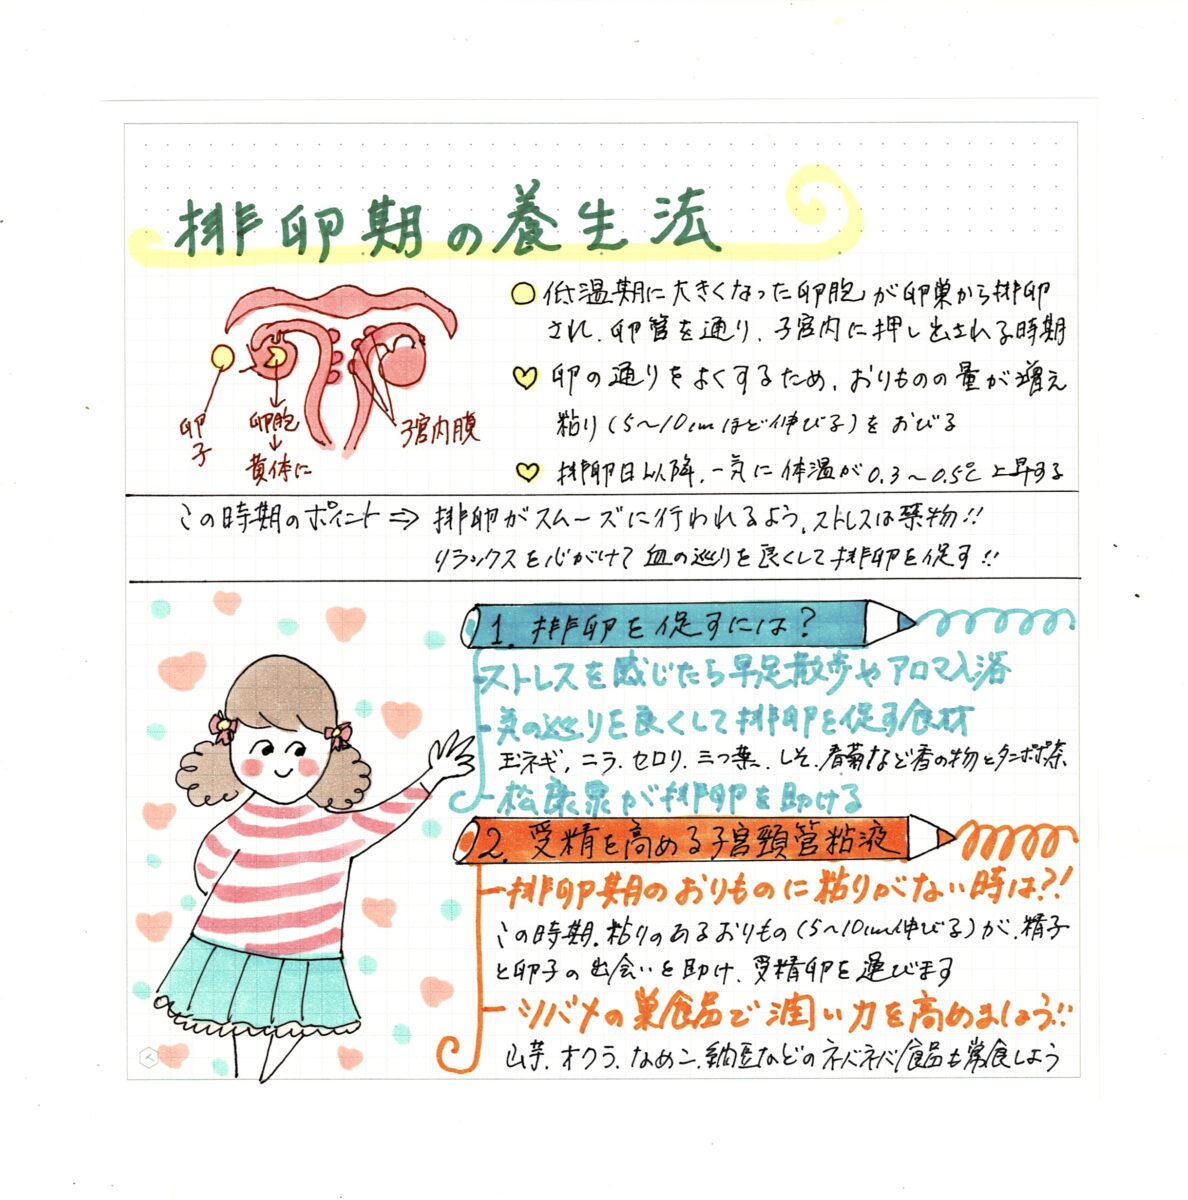 排卵期の養生法
低温期に大きくなった卵胞が卵巣から排卵
され、卵管を通り、子宮内に押し出される時期
卵の通りをよくするため、おりものの量が増え
粘り(5〜10cmほど伸びる)をおびる
排卵日以降、一気に体温が0.3〜0.5℃上昇する
卵子
卵胞
黄体に
子宮内膜
この時期のポイント⇒ 排卵がスムーズに行われるよう、ストレスは禁物!!
リラックスを心がけて血の巡りを良くして排卵を促す!!
1. 排卵を促すには?
ストレスを感じたら早足散歩やアロマ入浴
気の巡りを良くして排卵を促す食材
玉ネギ、ニラ、セロリ、三つ葉、しそ、春菊など香の物とタンポポ茶
松康泉が排卵を助ける
2. 受精を高める子宮頸管粘液
排卵期のおりものに粘りがない時は?!
この時期、粘りのあるおりもの(5〜10cm伸びる)が、精子
と卵子の出会いを助け、受精卵を運びます
シバメの巣食品で潤い力を高めましょう!!
山芋、オクラ、なめこ、納豆などのネバネバ食品も常食しよう